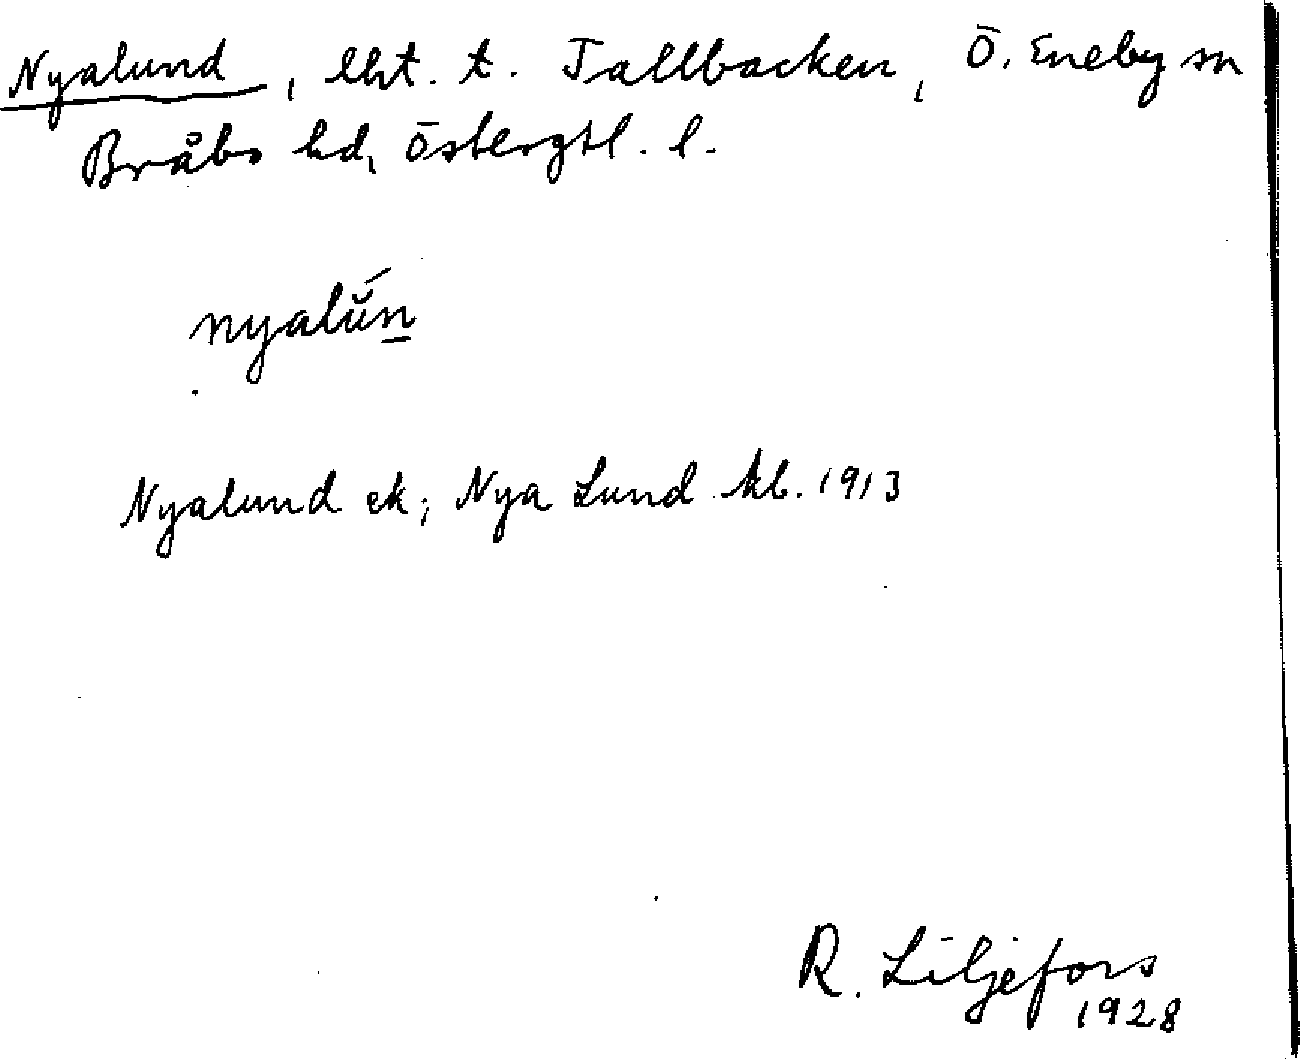 Nyalund, lht. t. Tallbacken, Ö. Eneby sn
Bråbo hd, Östergtl. l.
nyalŭ́n
Nyalund ek; Nya Lund kb. 1913
R. Liljefors
1928